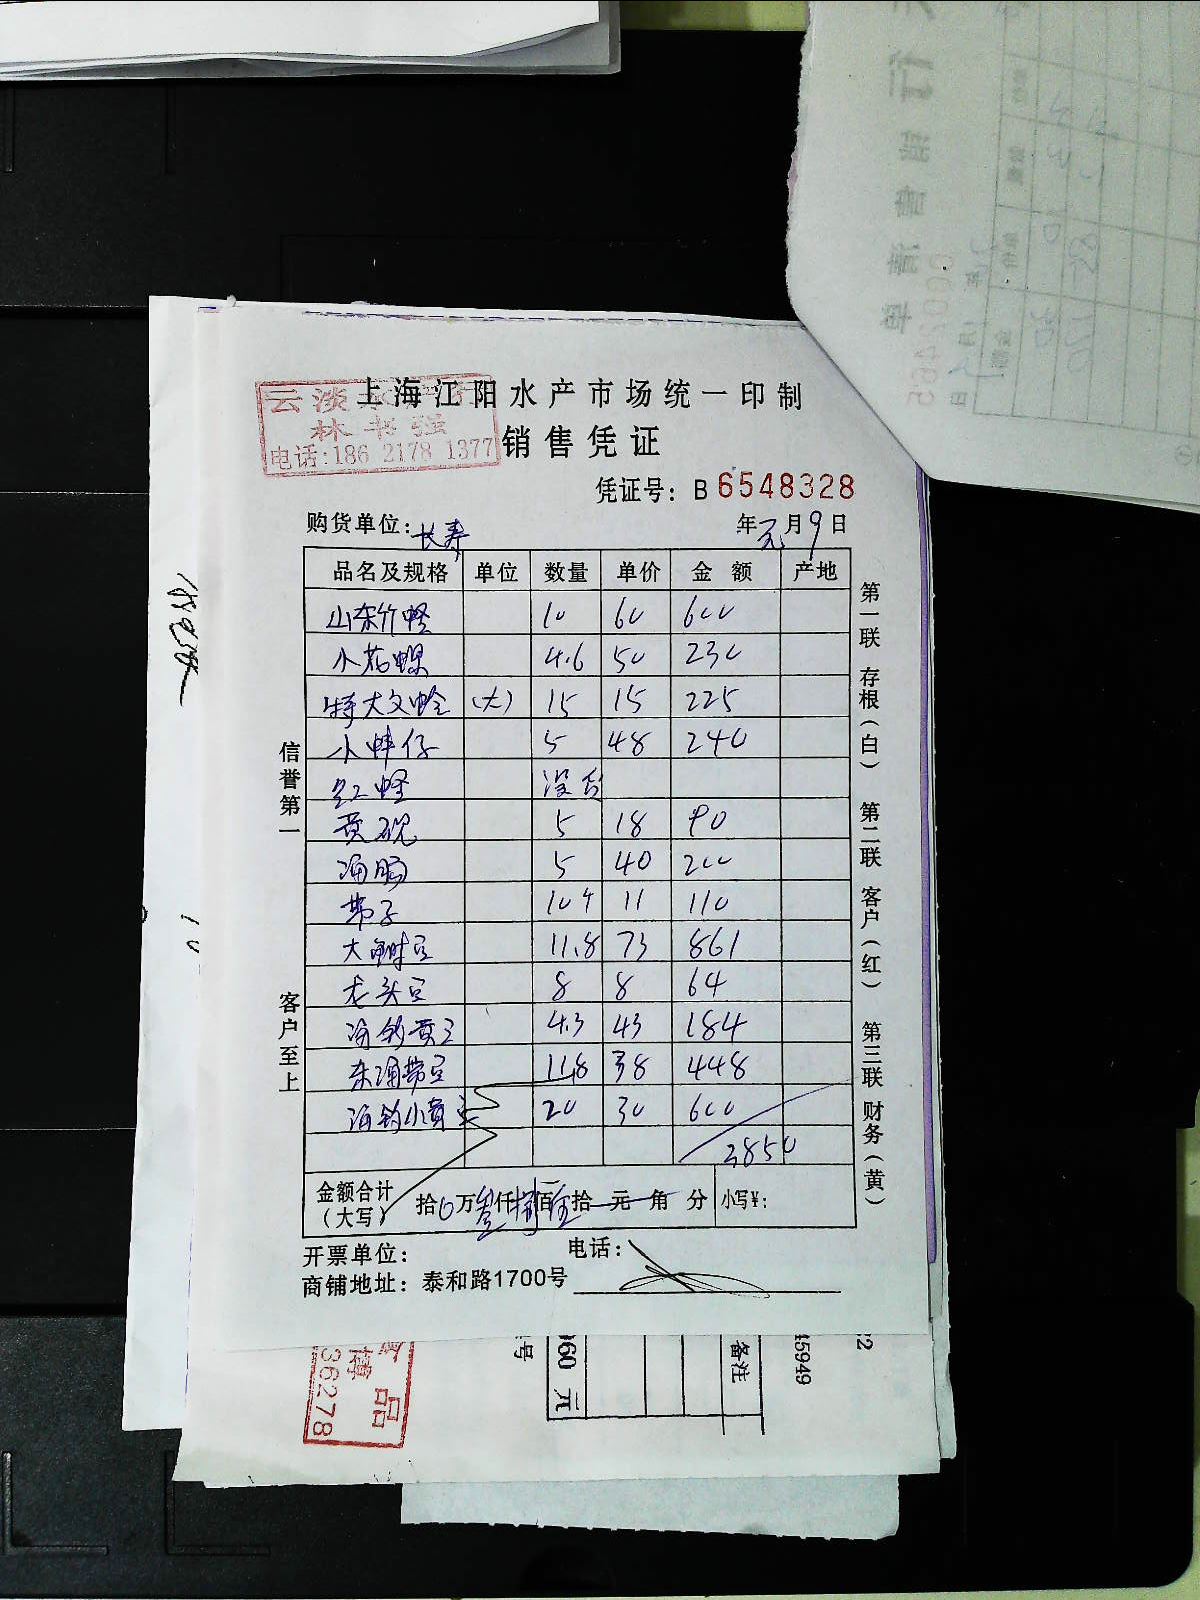 上海江阳水产市场统一印制
云淡
林书强
电话:186 2178 1377
销售凭证
凭证号: B 6548328
购货单位: 长寿 年 元 月 9 日
品名及规格 单位 数量 单价 金额 产地
山东竹蛏 10 60 600
小花螺 4.6 50 230
特大文蛤 (大) 15 15 225
小蚌仔 5 48 240
红蛏 没货
黄砚 5 18 90
海肠 5 40 200
带子 10个 11 110
大鲥豆 11.8 73 861
龙头豆 8 8 64
海钓黄豆 4.3 43 184
东海带豆 11.8 38 448
海钓小黄豆 20 30 600
3850
金额合计
(大写) 拾 万 叁 仟 捌 佰 伍 拾 元 角 分 小写¥:
开票单位: 电话:
商铺地址: 泰和路1700号
信誉第一 客户至上
第一联 存根(白) 第二联 客户(红) 第三联 财务(黄)
36278
品
060 元
号
备注
45949